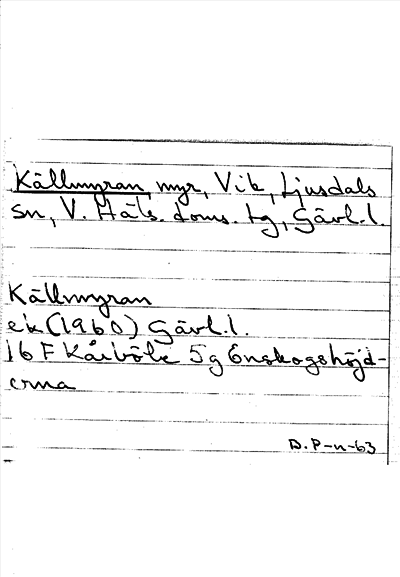 Källmyran myr, Vik, Ljusdals
sn, V. Häls. doms. tg, Gävl.l.
Källmyran
ek (1960) Gävl.l.
16 F Kårböle 5g Enskogshöjd-
erna
D. P-n-63